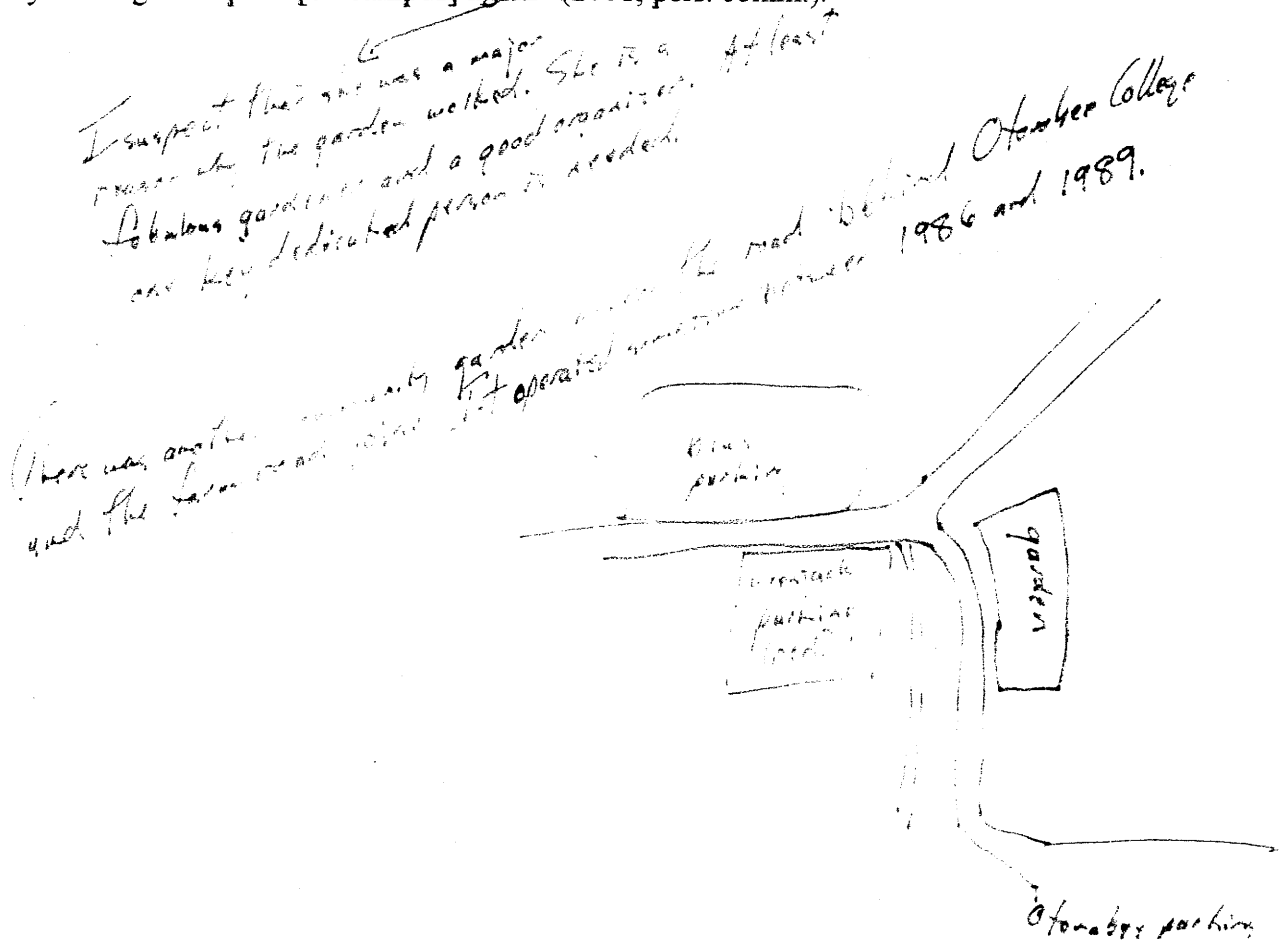 (2001, pers. comm.).
I suspect that she was a major
reason why the garden worked. She is a
fabulous gardener and a good organizer. At least
one key dedicated person is needed.
There was another community garden where the road behind Otonabee College
and the farm road joins. It operated sometime between 1986 and 1989.
parking
garden
parking
Otonabee parking